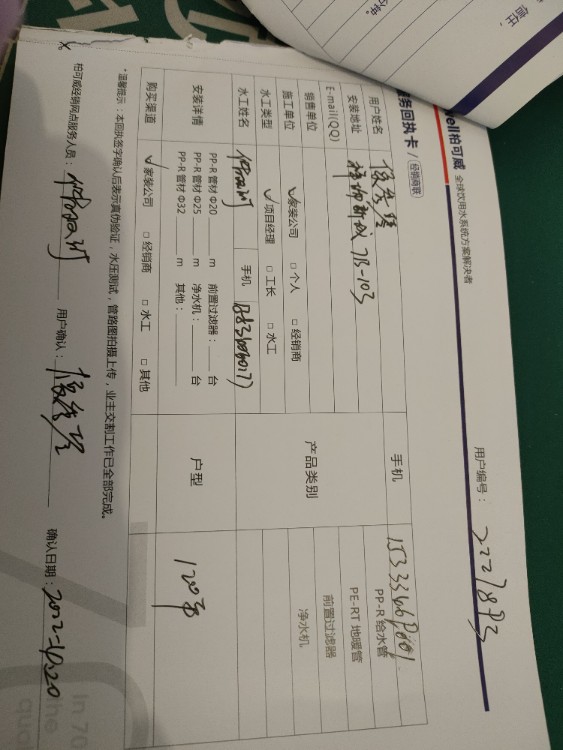 信任，
ell柏可威 全球饮用水系统方案解决者
务回执卡 / 经销商联
用户编号：
用户姓名
手机
安装地址 7B-103
PP-R 给水管
E-mail(QQ)
PE-RT 地暖管
销售单位
产品类别
前置过滤器
施工单位 ✓家装公司 □ 个人 □ 经销商
净水机
水工类型 ✓项目经理 □ 工长 □ 水工
水工姓名 手机
安装详情
PP-R 管材 Φ20 m 前置过滤器： 台
PP-R 管材 Φ25 m 净水机： 台
PP-R 管材 Φ32 m 其他：
户型 120平
购买渠道 ✓家装公司 □ 经销商 □ 水工 □ 其他
*温馨提示：本回执签字确认后表示真伪验证，水压测试，管路图拍摄上传，业主交割工作已全部完成。
柏可威经销网点服务人员： 用户确认： 确认日期：2022-10.20
In 70
the
qual